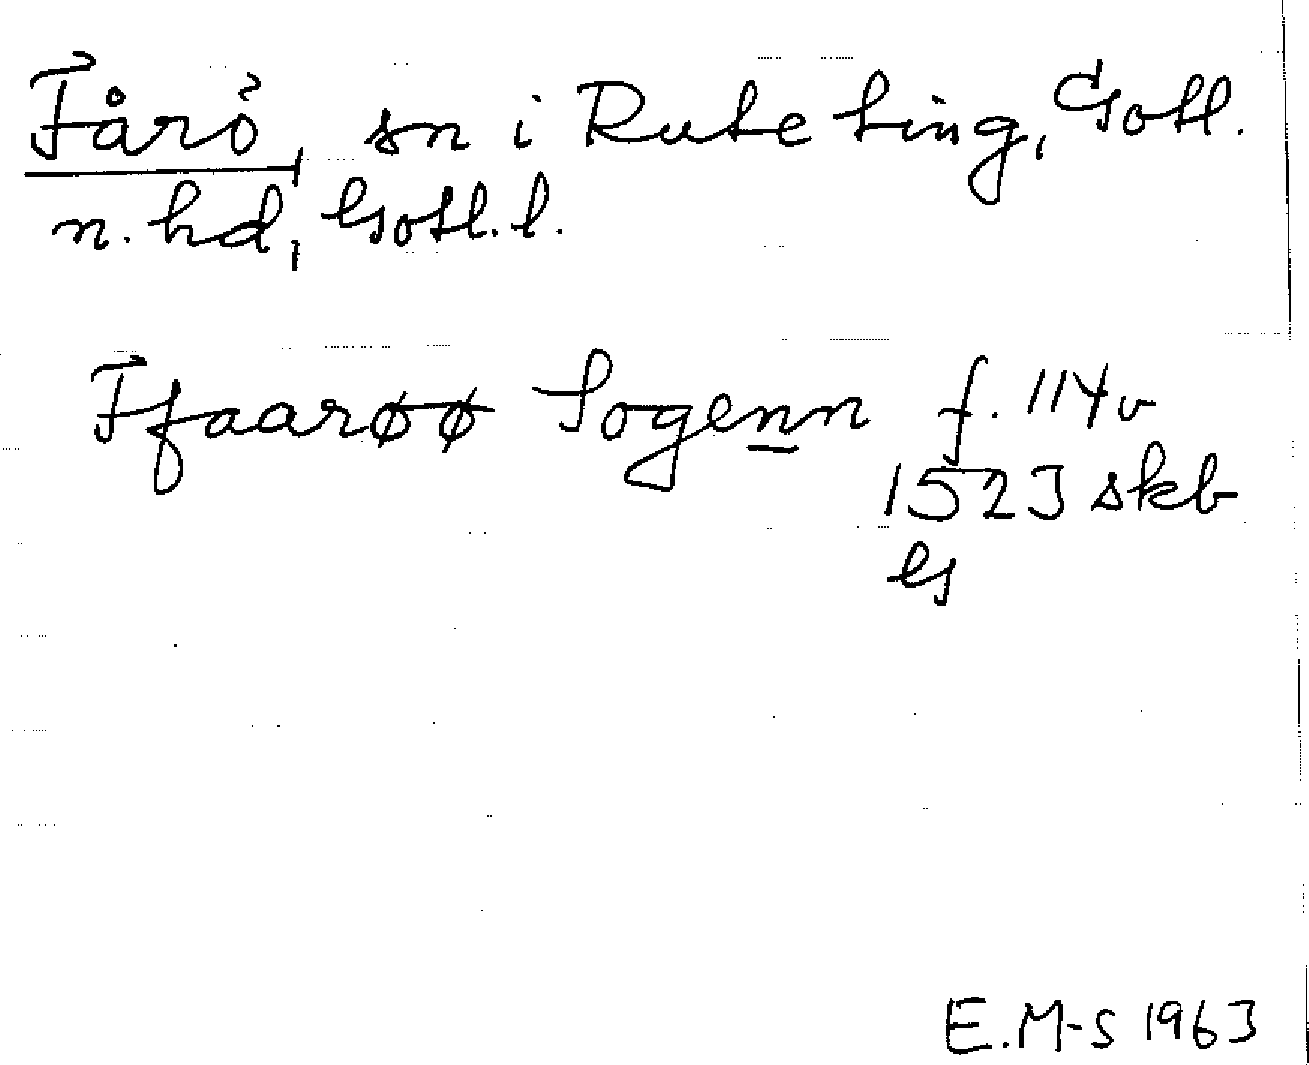 Fårö, sn i Rute ting, Gotl.
n. hd, Gotl. l.
Ffaarøø Sogenn f. 114v
1523 skb
G
E.M-S 1963